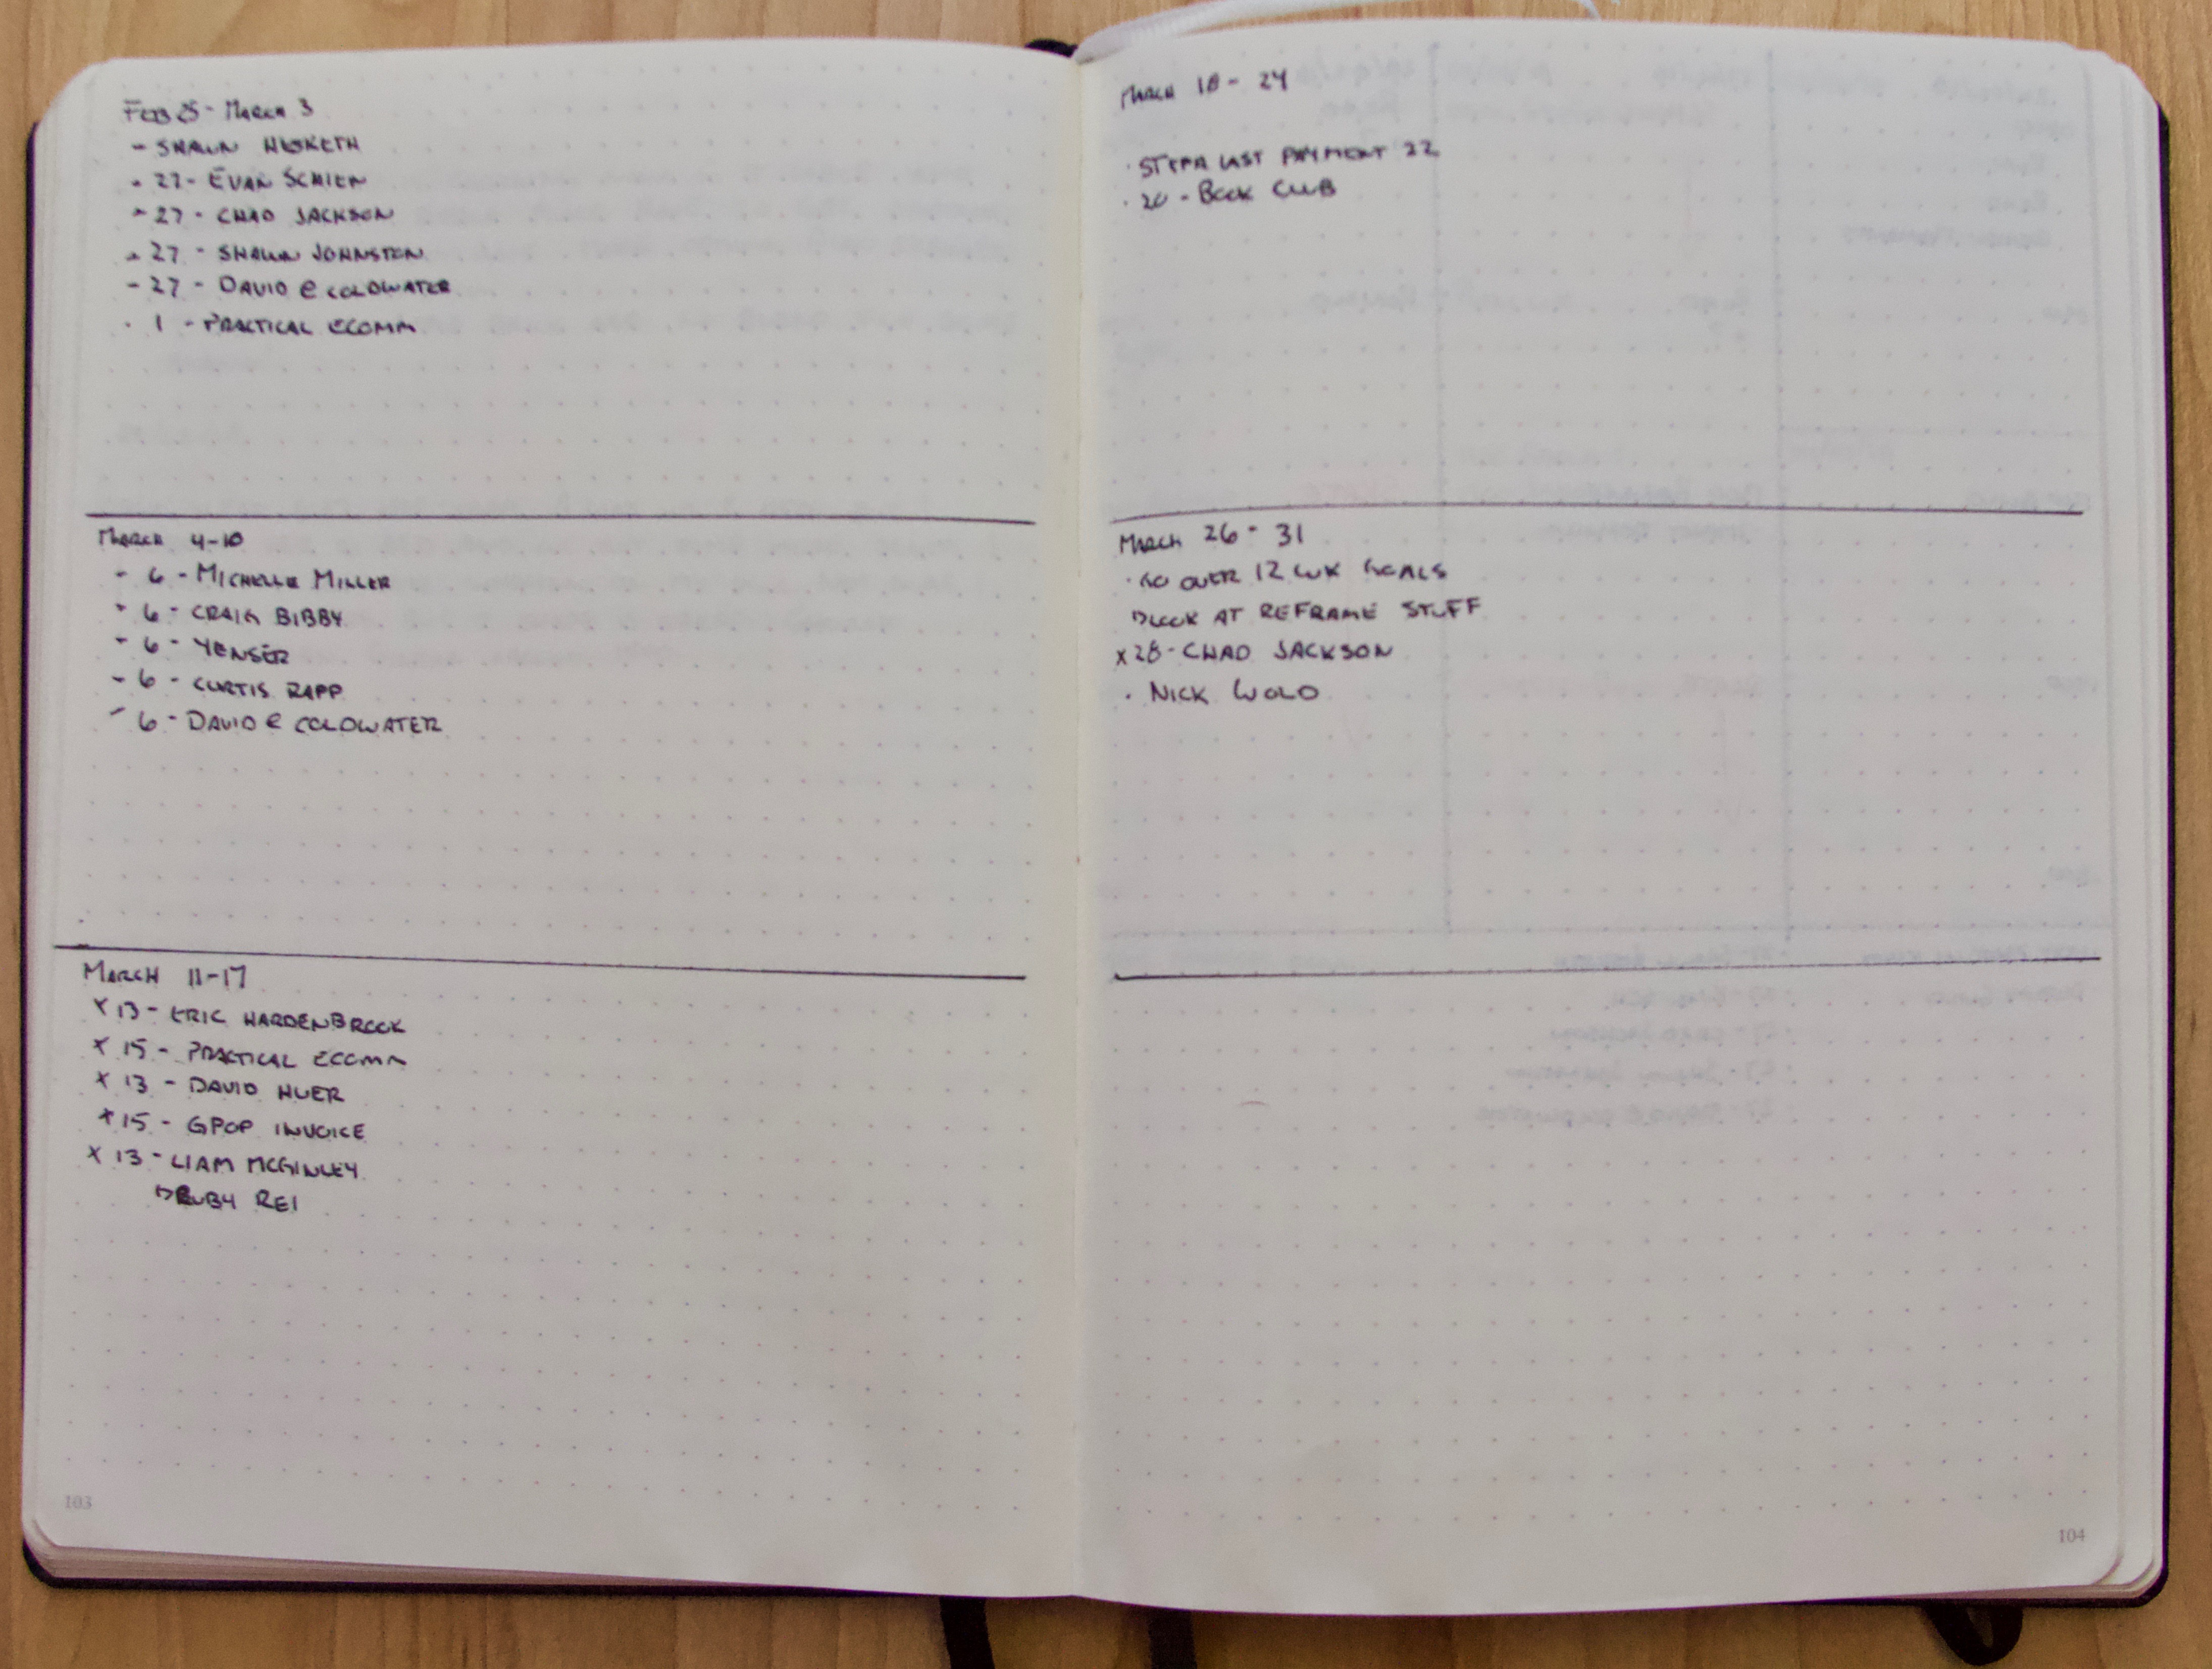 Feb 25 - March 3
- Shawn Hesketh
- 27 - Evan Schien
- 27 - Chad Jackson
- 27 - Shawn Johnston
- 27 - David @ Coldwater
· 1 - Practical Ecomm
March 4-10
- 6 - Michelle Miller
- 6 - Craig Bibby
- 6 - Yenser
- 6 - Curtis Rapp
- 6 - David @ Coldwater
March 11-17
x 13 - Eric Hardenbrook
x 15 - Practical Ecomm
x 13 - David Huer
x 15 - GPOP Invoice
x 13 - Liam McGinley
Ruby Rei
103
March 18 - 24
· Last Payment 22
· 20 - Book Club
March 26 - 31
· Go over 12 wk goals
Look at Reframe stuff
x 28 - Chad Jackson
· Nick Wolo
104